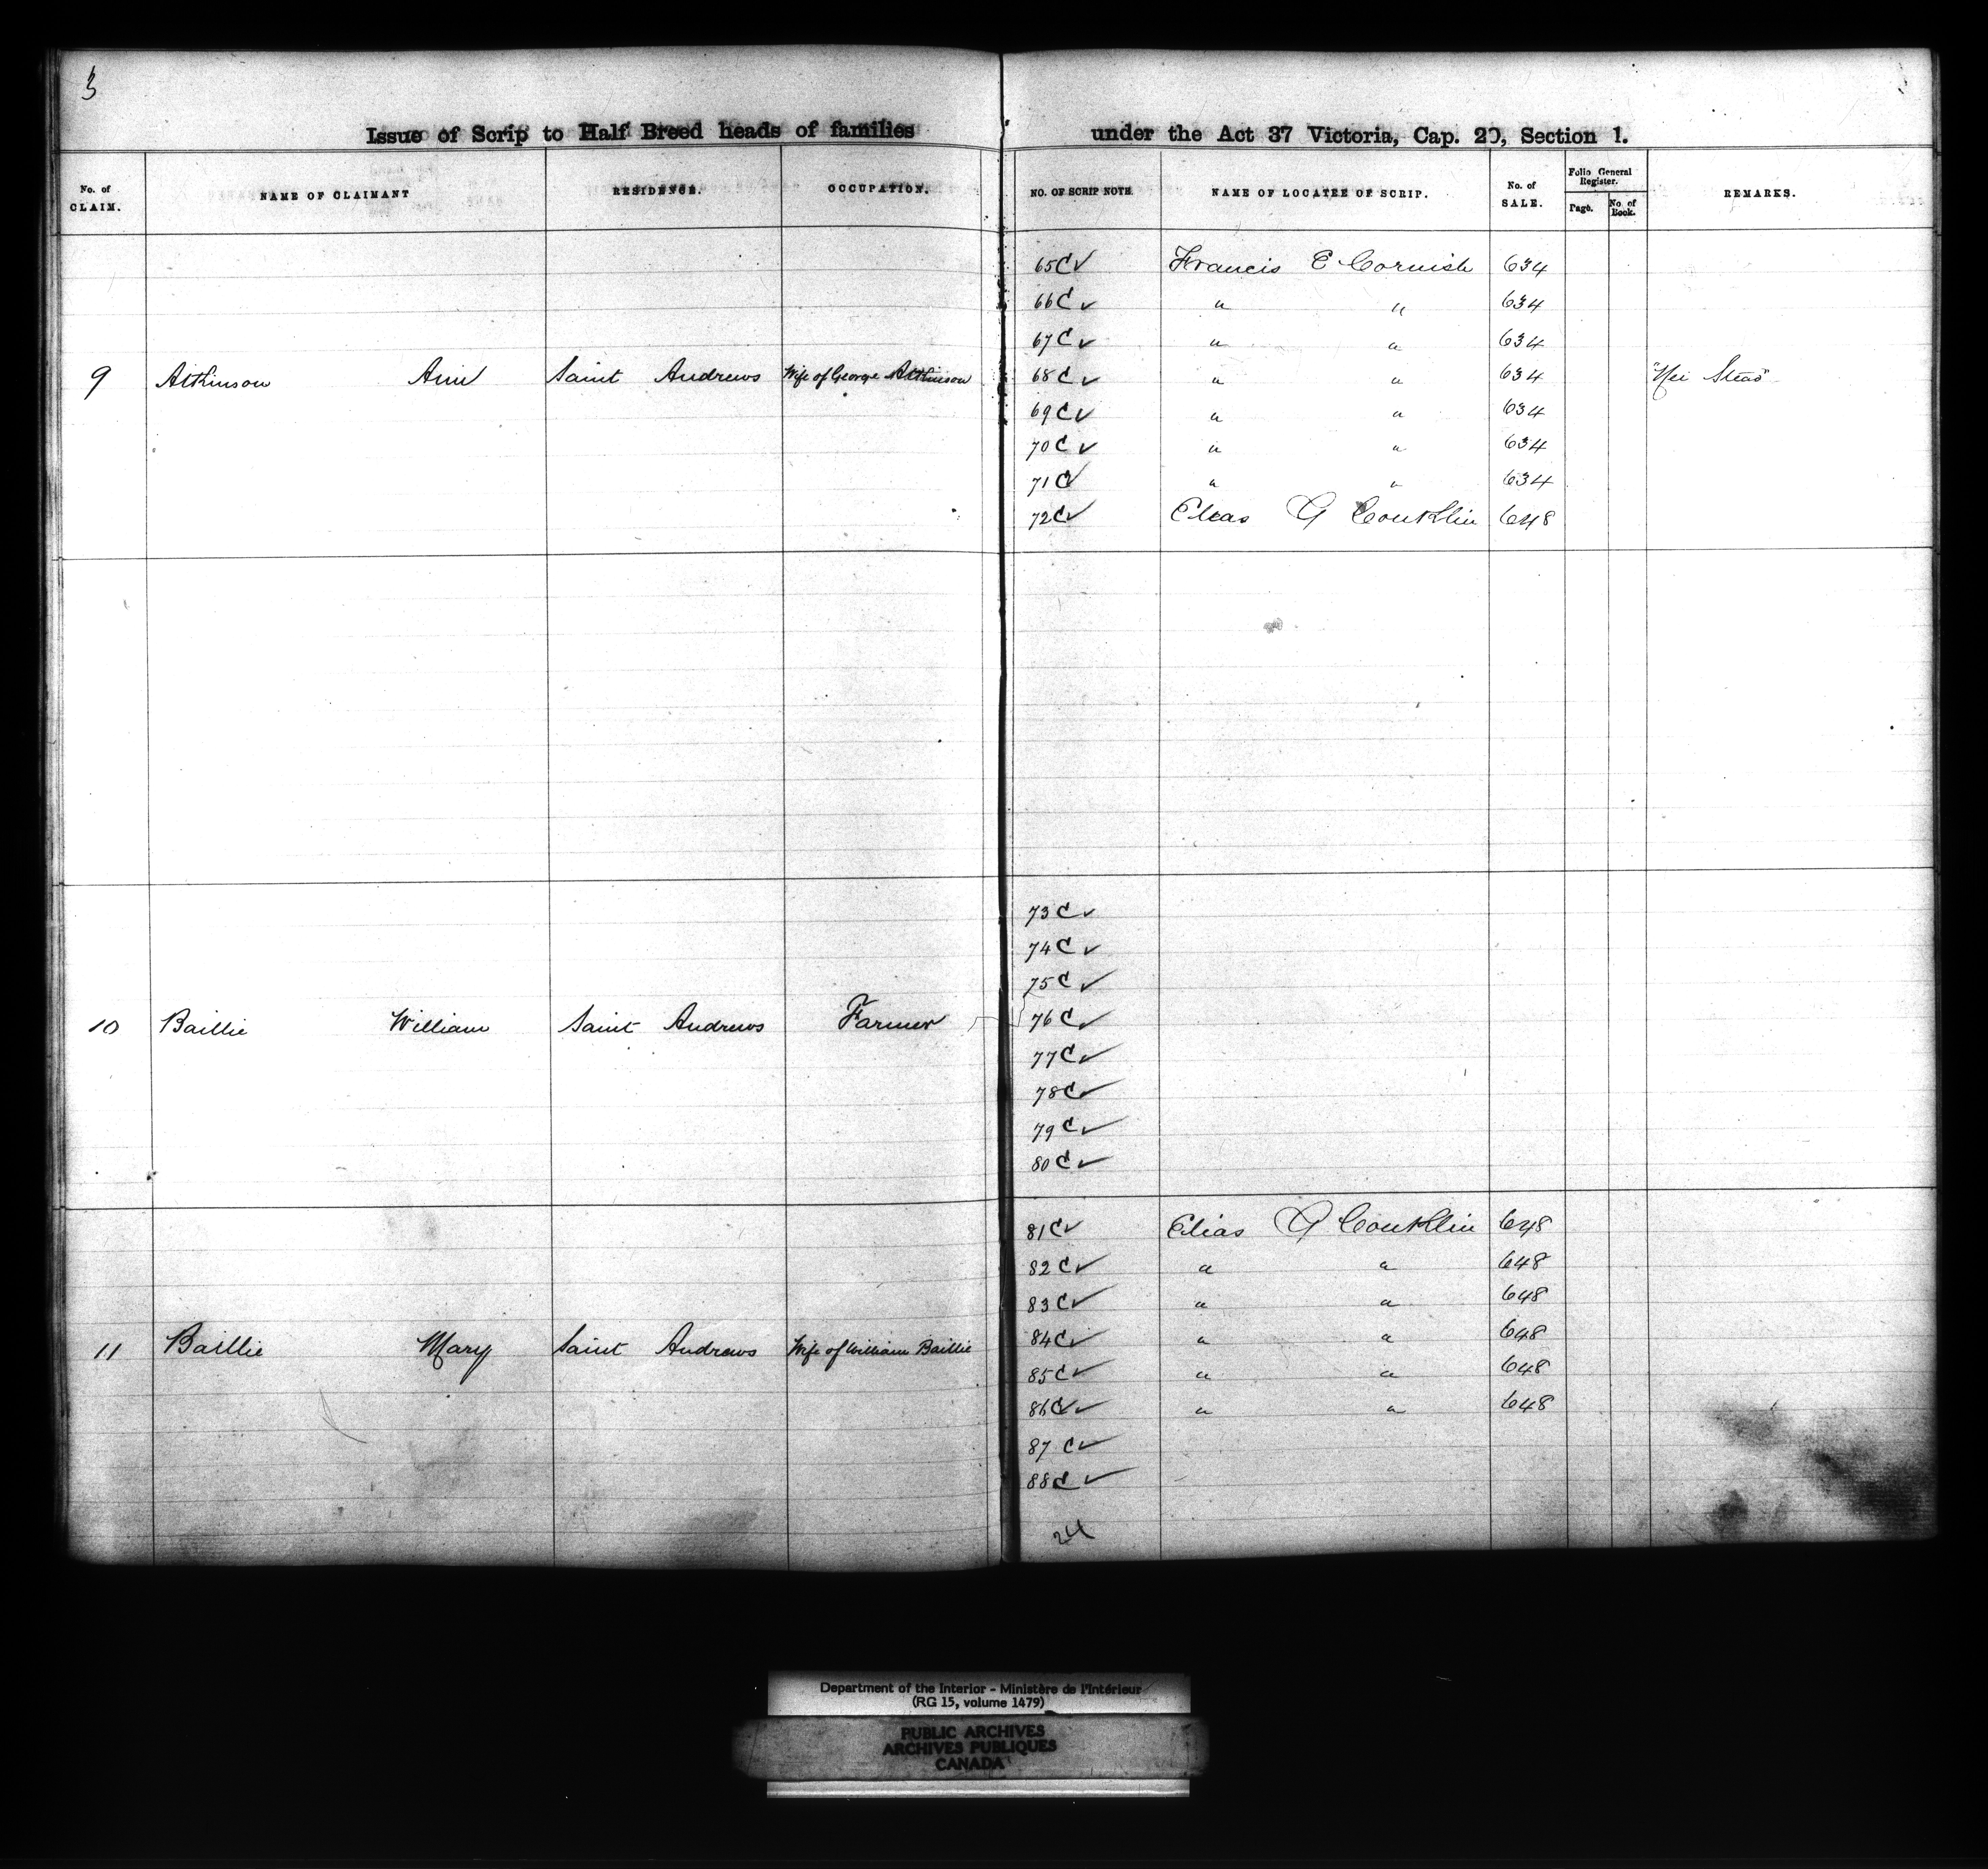 3
Issue of Scrip to Half Breed heads of families under the Act 37 Victoria, Cap. 20, Section 1.
No. of CLAIM. NAME OF CLAIMANT RESIDENCE. OCCUPATION. NO. OF SCRIP NOTE. NAME OF LOCATEE OF SCRIP. No. of SALE. Folio General Register. Page. No. of Book. REMARKS.
65 C ✓ Francis E Cornish 634
66 C ✓ " " 634
67 C ✓ " " 634
9 Atkinson Ann Saint Andrews Wife of George Atkinson 68 C ✓ " " 634 "Nei Stead"
69 C ✓ " " 634
70 C ✓ " " 634
71 C ✓ " " 634
72 C ✓ Elias G Conklin 648
73 C ✓
74 C ✓
75 C ✓
10 Baillie William Saint Andrews Farmer 76 C ✓
77 C ✓
78 C ✓
79 C ✓
80 C ✓
81 C ✓ Elias G Conklin 648
82 C ✓ " " 648
83 C ✓ " " 648
11 Baillie Mary Saint Andrews Wife of William Baillie 84 C ✓ " " 648
85 C ✓ " " 648
86 C ✓ " " 648
87 C ✓
88 C ✓
24
Department of the Interior - Ministère de l'Intérieur
(RG 15, volume 1479)
PUBLIC ARCHIVES
ARCHIVES PUBLIQUES
CANADA